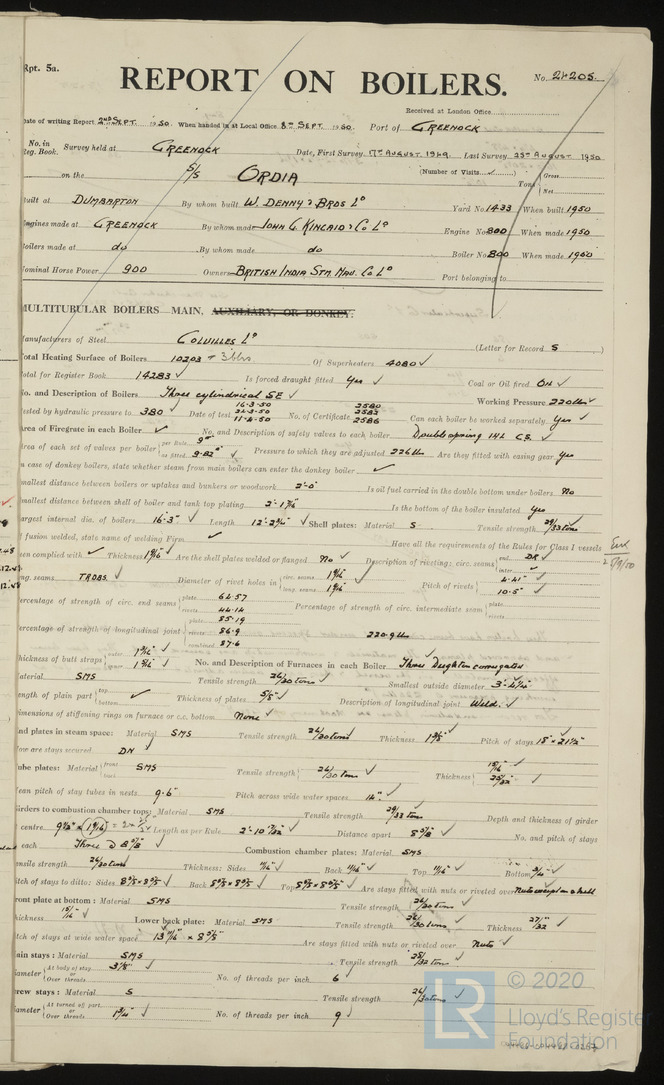 Rpt. 5a.
REPORT ON BOILERS.
No. 24205.
Received at London Office
Date of writing Report 2ND SEPT. 1950. When handed in at Local Office 8TH SEPT. 1950. Port of GREENOCK
No. in Reg. Book. Survey held at GREENOCK Date, First Survey 17TH AUGUST 1949. Last Survey 23RD AUGUST 1950
on the S/S ORDIA (Number of Visits ) Tons Gross Net
Built at DUMBARTON By whom built W. DENNY & BROS Ld Yard No. 1433 When built 1950
Engines made at GREENOCK By whom made JOHN G. KINCAID & Co Ld Engine No. 800 When made 1950
Boilers made at do By whom made do Boiler No. 800 When made 1950
Nominal Horse Power 900 Owners BRITISH INDIA STM. NAV. Co Ld Port belonging to
MULTITUBULAR BOILERS MAIN, AUXILIARY, OR DONKEY.
Manufacturers of Steel COLVILLES Ld (Letter for Record S )
Total Heating Surface of Boilers 10203 Of Superheaters 4080
Total for Register Book 14283 Is forced draught fitted Yes Coal or Oil fired Oil
No. and Description of Boilers Three cylindrical SE Working Pressure 220 lbs
Tested by hydraulic pressure to 380 Date of test 16-3-50 No. of Certificate 2580 2583 2586 Can each boiler be worked separately Yes
Area of Firegrate in each Boiler No. and Description of safety valves to each boiler Double spring
Area of each set of valves per boiler per Rule as fitted 9.82 Pressure to which they are adjusted 226 lbs Are they fitted with easing gear Yes
In case of donkey boilers, state whether steam from main boilers can enter the donkey boiler
Smallest distance between boilers or uptakes and bunkers or woodwork 2'-0" Is oil fuel carried in the double bottom under boilers No
Smallest distance between shell of boiler and tank top plating Is the bottom of the boiler insulated Yes
Largest internal dia. of boilers 16'-3" Length Shell plates: Material S Tensile strength 29/33 tons
If fusion welded, state name of welding Firm Have all the requirements of the Rules for Class I vessels
been complied with Thickness Are the shell plates welded or flanged No Description of riveting: circ. seams end DR inter
long. seams TRDBS Diameter of rivet holes in circ. seams long. seams Pitch of rivets 4.41" 10.5"
Percentage of strength of circ. end seams plate 64.57 rivets 44.14 Percentage of strength of circ. intermediate seam plate rivets
Percentage of strength of longitudinal joint plate 85.19 rivets 86.9 combined 87.6 220.9 lbs
Thickness of butt straps outer inner No. and Description of Furnaces in each Boiler Three Deighton corrugated
Material SMS Tensile strength 26/30 tons Smallest outside diameter
Length of plain part top bottom Thickness of plates Description of longitudinal joint Weld.
Dimensions of stiffening rings on furnace or c.c. bottom None
End plates in steam space: Material SMS Tensile strength 26/30 tons Thickness Pitch of stays 18" x 21½"
How are stays secured DN
Tube plates: Material front back SMS Tensile strength 26/30 tons Thickness 15/16 25/32
Mean pitch of stay tubes in nests 9.6 Pitch across wide water spaces 14"
Girders to combustion chamber tops: Material SMS Tensile strength 29/33 tons Depth and thickness of girder
at centre Length as per Rule Distance apart No. and pitch of stays
in each Three Combustion chamber plates: Material SMS
Tensile strength 26/30 tons Thickness: Sides Back Top Bottom
Pitch of stays to ditto: Sides Back Top Are stays fitted with nuts or riveted over
Front plate at bottom: Material SMS Tensile strength 26/30 tons
Thickness 15/16 Lower back plate: Material SMS Tensile strength 26/30 tons Thickness 27/32
Pitch of stays at wide water space Are stays fitted with nuts or riveted over Nuts
Main stays: Material SMS Tensile strength 28/32 tons
Diameter At body of stay or Over threads No. of threads per inch 6
Screw stays: Material S Tensile strength 26/30 tons
Diameter At turned off part or Over threads 1¾" No. of threads per inch 9
© 2020
LR
Lloyd's Register
Foundation